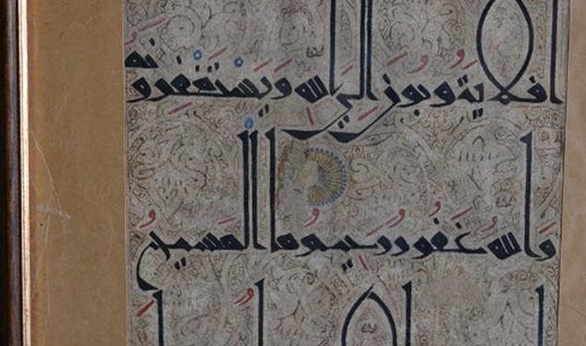 اَفَلَا يَتُوبُونَ اِلَي اللهِ وَيَسْتَغْفِرُونَهُ
وَاللهُ غَفُورٌ رَحِيمٌ مَا الْمَسِيحُ